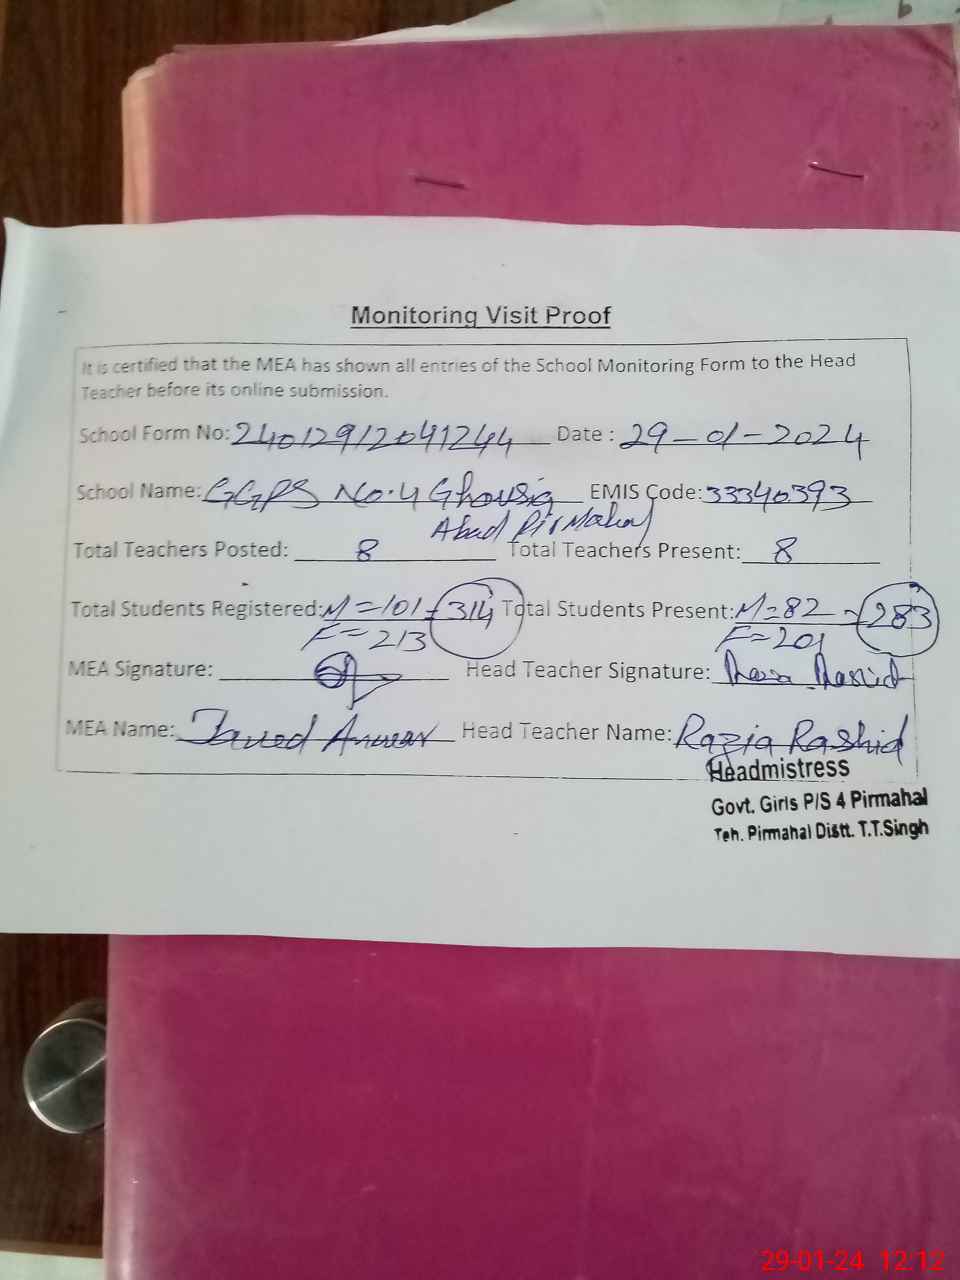 Monitoring Visit Proof
It is certified that the MEA has shown all entries of the School Monitoring Form to the Head
Teacher before its online submission.
School Form No: 24012912041244 Date : 29-01-2024
School Name: GGPS No.4 Ghousia EMIS Code: 33340393
Abad Pir Mahal
Total Teachers Posted: 8 Total Teachers Present: 8
Total Students Registered: M=101 = 314 Total Students Present: M=82 = 283
F=213 F=201
MEA Signature: Head Teacher Signature: Rashid
MEA Name: Javed Anwar Head Teacher Name: Razia Rashid
Headmistress
Govt. Girls P/S 4 Pirmahal
Teh. Pirmahal Distt. T.T.Singh
29-01-24 12:12